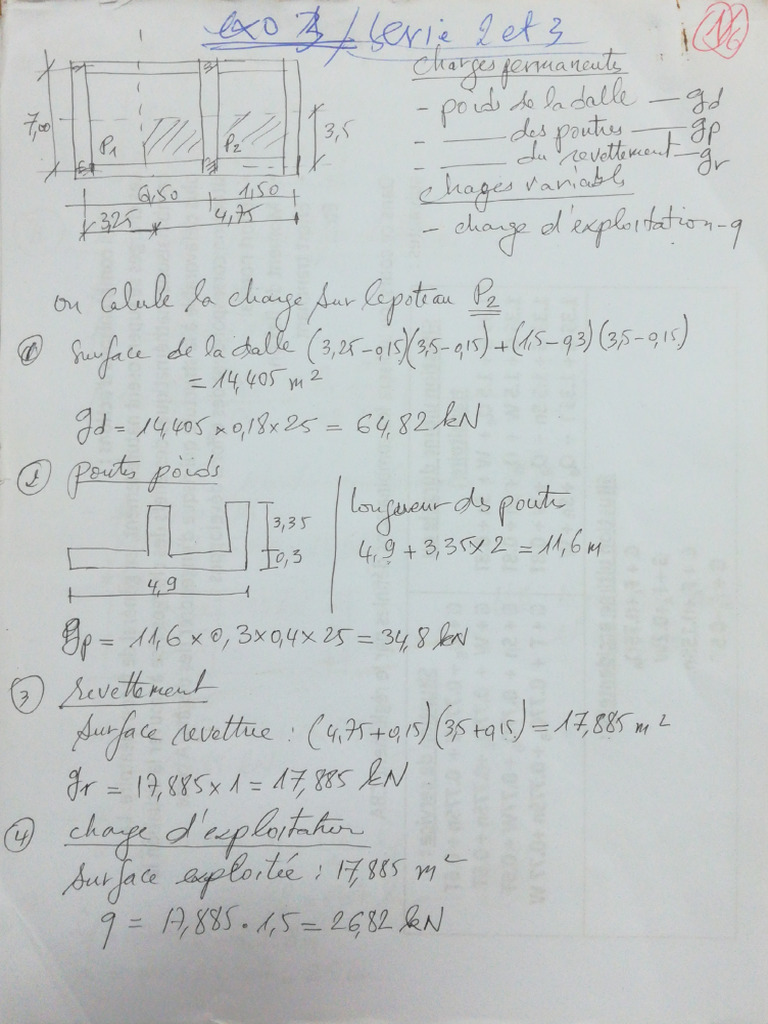 exo 3 / serie 2 et 3
1/6
charges permanents
- poids de la dalle — gd
- —— des poutres —— gp
- —— du revettement — gr
chages variabls
- charge d'exploitation - q
7,00
P1
P2
3,5
6,50
1,50
3,25
4,75
on calcule la charge sur le poteau P2
① surface de la dalle (3,25-0,15)(3,5-0,15)+(1,5-0,3)(3,5-0,15)
= 14,405 m²
gd = 14,405 x 0,18 x 25 = 64,82 kN
② poutes poids
3,35
0,3
4,9
longueur des pouts
4,9 + 3,35 x 2 = 11,6 m
gp = 11,6 x 0,3 x 0,4 x 25 = 34,8 kN
③ revettement
surface revettue : (4,75+0,15)(3,5+0,15) = 17,885 m²
gr = 17,885 x 1 = 17,885 kN
④ charge d'exploitation
surface exploitée : 17,885 m²
q = 17,885 . 1,5 = 26,82 kN